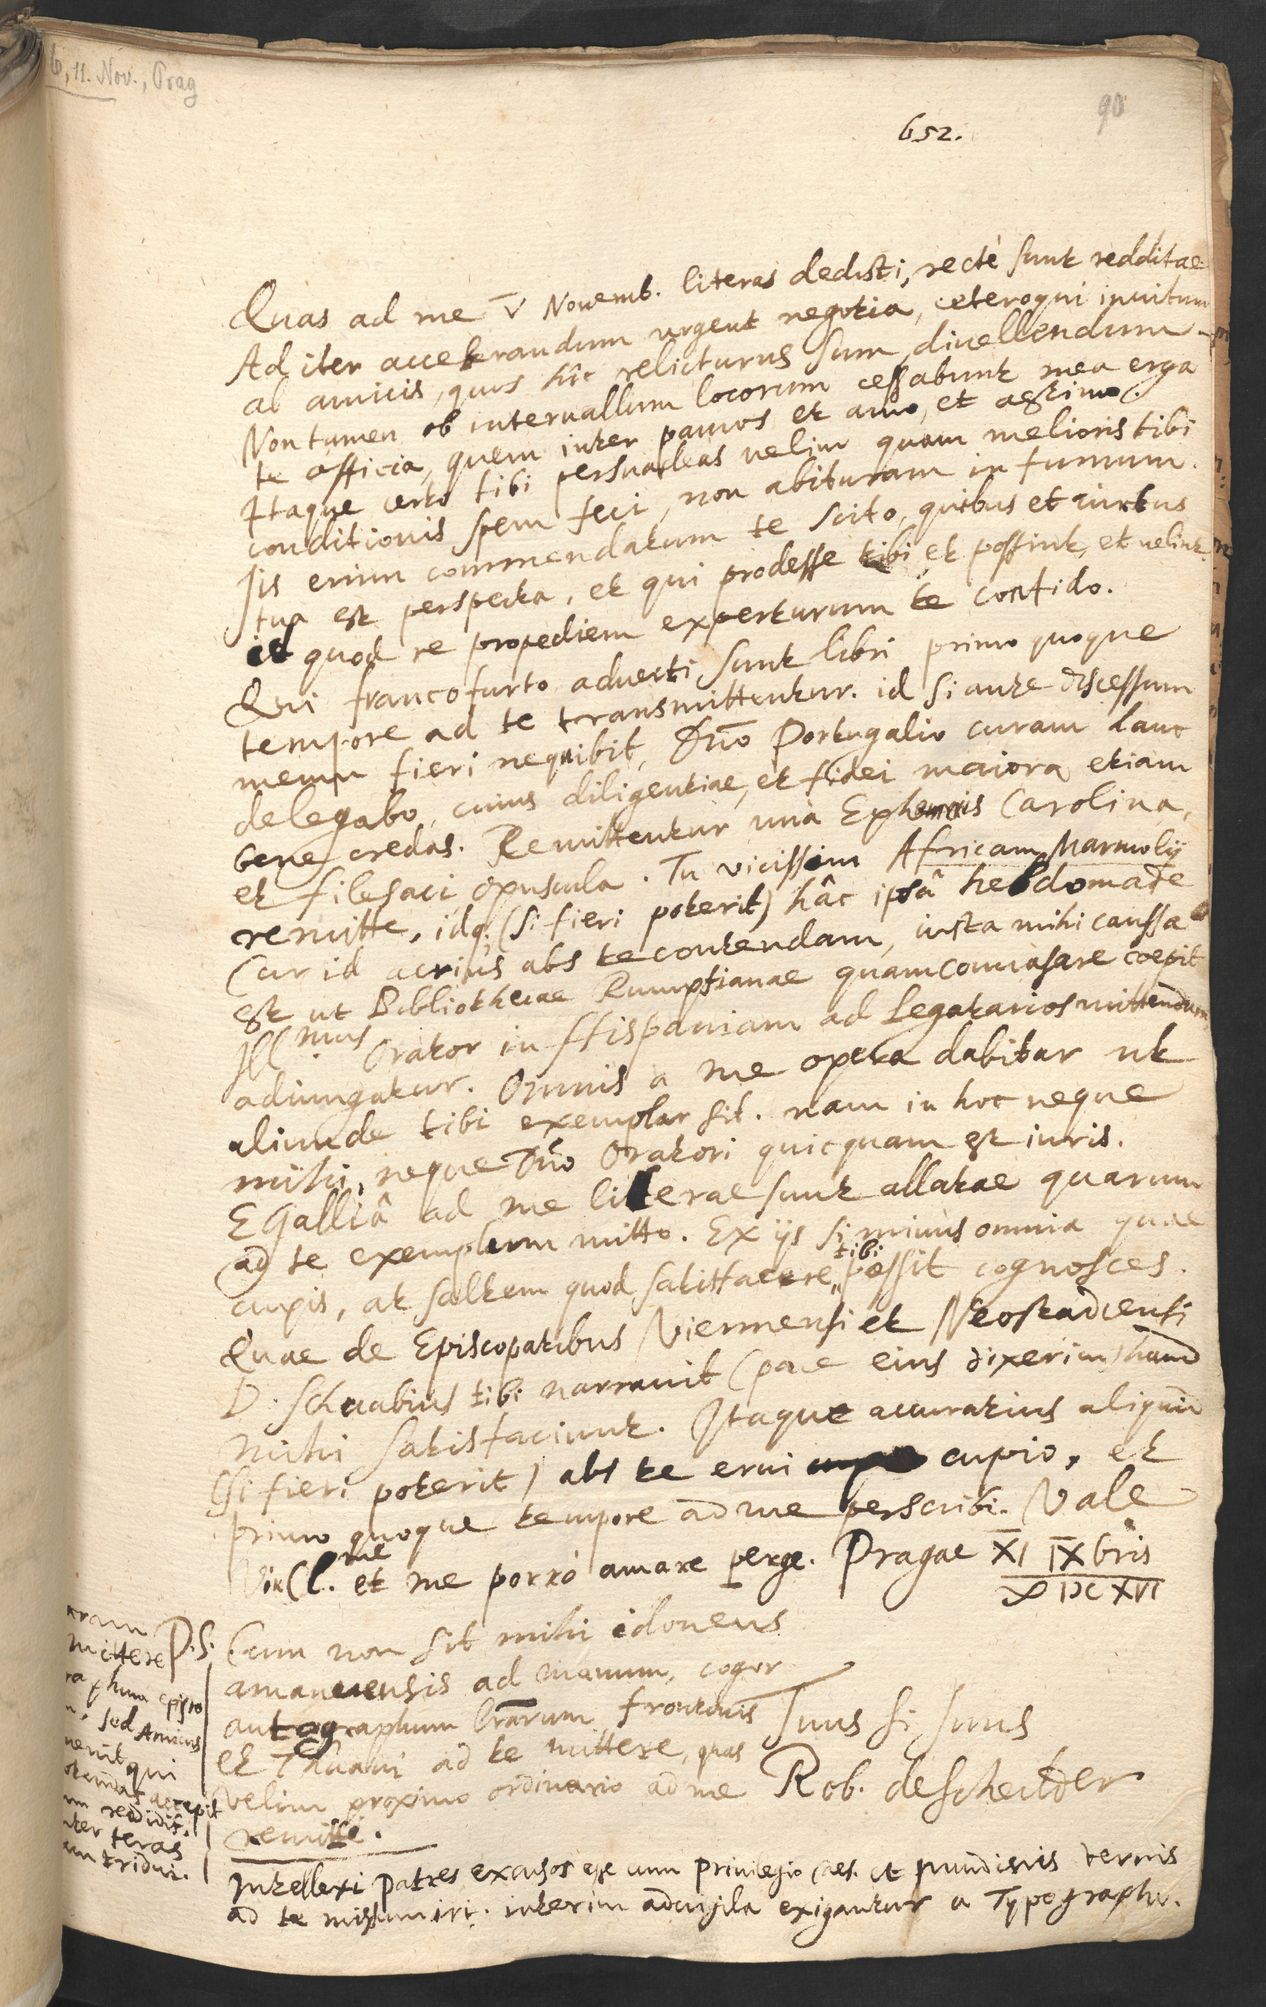 6, 11. Nov., Prag
90
652.
Quas ad me V Novemb. literas dedisti, rectè sunt redditae
Ad iter accelerandum urgent negotia, ceteroqui invitum
ab amicis, quos hîc relicturus sum, divellendum
Non tamen ob intervallum locorum cessabunt mea erga
te officia, quem inter paucos et amo, et aestimo.
Itaque certo tibi persuadeas velim quam melioris tibi
conditionis spem feci, non abituram in fumum.
Iis enim commendatum te scito, quibus et virtus
tua est perspecta, et qui prodesse tibi et possint, et velint
id quod re propediem experturum te confido.
Qui francofurto advecti sunt libri primo quoque
tempore ad te transmittentur. id si ante discessum
meum fieri nequibit, Dno Portugalio curam hanc
delegabo, cuius diligentiae, et fidei maiora etiam
bene credas. Remittentur unà Ephemeris Carolina,
et filesaci opuscula. Tu vicissim Africam Marmolij
remitte, idq. (si fieri poterit) hâc ipsâ hebdomade
Cur id acriùs abs te contendam, iusta mihi caussa
est ut Bibliothecae Rumpfianae quam convasare coepit
Ill mus Orator in Hispaniam ad Legatarios mittendam
adiungatur. Omnis a me opera dabitur ut
aliunde tibi exemplar sit. nam in hoc neque
mihi, neque Dno Oratori quicquam est iuris.
E Galliâ ad me litterae sunt allatae quarum
ad te exemplum mitto. Ex ijs si minus omnia quae
cupis, at saltem quod satisfacere tibi possit cognosces.
Quae de Episcopatibus Viennensi et Neostadiensi
D. Schwabius tibi narravit (pace eius dixerim) haud
mihi satisfaciunt. Itaque accuratius aliquid
(si fieri poterit) abs te erui cupio, et
primo quoque tempore ad me perscribi. Vale
Vir Cl. me et me porrò amare perge. Pragae XI IXbris
IƆC XVI
P.S. Cum non sit mihi idoneus
amanuensis ad manum, cogor
autographum lrarum frontonis
et Thuani ad te mittere, quas
velim proximo ordinario ad me
remitte.
Tuus si suus
Rob. de Scheilder
mittere
epistо
sed Amicus
venit qui
accepit
reddidit,
inter teras
tridui.
Intellexi Patres excusos esse cum privilegio Caes. et nundinis vernis
ad te missum iri. interim advigila exigantur a Typographo.